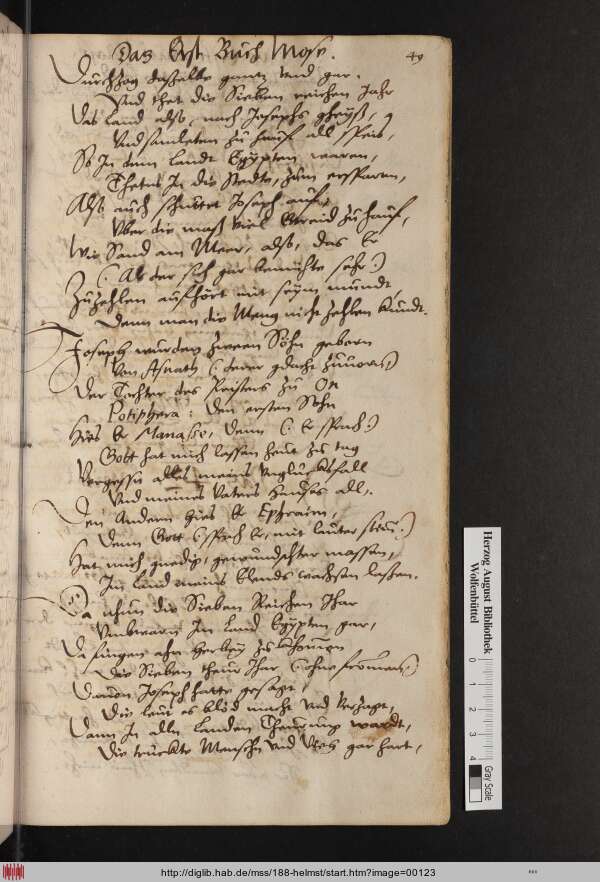 Das Erst Buch Mose.
49
Durchzog dasselbe gantz und gar.
Und thet die Sieben reichen Jahr
Das Land also, nach Josephs
Und samleten zu hauf all speis,
So In dem landt Egypten waren,
Thetens In die Stedte, zum ersparen,
Also auch schüttet Joseph auf
Vber die maß viel Getreid zu hauf,
Wie Sand am Meer, also, das Er
(: Ob der sich gar bemühte sehr :)
Zuzehlen aufhört mit seim mundt
Denn man die Meng nicht zehlen kundt.
Joseph wurden zween Söhn geborn
Von Asnath (: derer gdacht zuuorn :)
Der Tochter des Pristers zu On
Potiphera: den ersten Sohn
Hies Er Manasse, denn (: Er sprach :)
Gott hat mich lassen heut zu tag
Vergessen alles meins Unglücksfall
Und meines Vaters Hauses all.
Den Andern hies Er Ephraim,
Denn Gott (: sprach Er, mit lauter stim :)
Hat mich gnedig, gewünschter massen,
Im Land meins Elends wachsen lassen.
Da nhun die Sieben Reichen Jhar
Umbwarn In Land Egypten gar,
Da fingen ahn herbey zu khomen
Die Sieben theur Jhar (: ohne fromen :)
Dauon Joseph hatte gesagt,
Die leut es blöd macht und verzagt,
Dann In alln Landen Theurung wardt,
Die truckte Menschn und Vieh gar hart,
Herzog August Bibliothek
Wolfenbüttel
0 1 2 3 4
Gray Scale
http://diglib.hab.de/mss/188-helmst/start.htm?image=00123